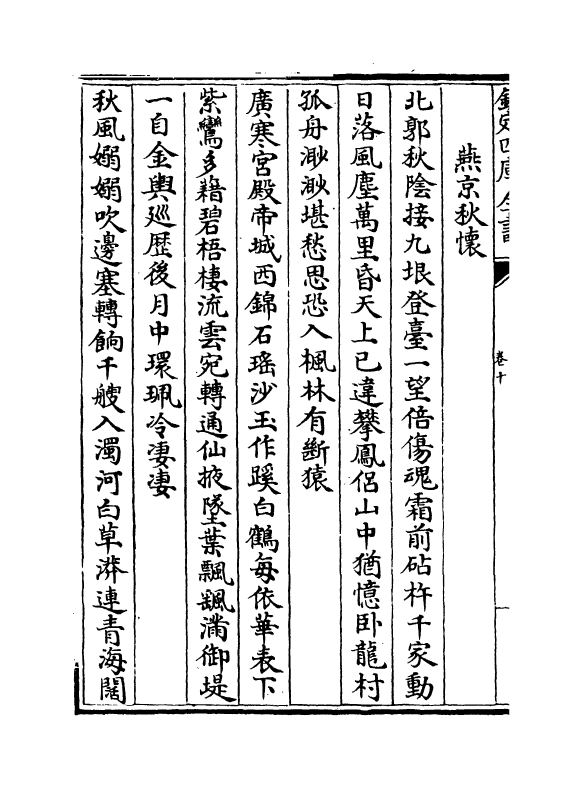 欽定四庫全書
卷十
燕京秋懷
北郭秋陰接九垠登臺一望倍傷魂霜前砧杵千家動
日落風塵萬里昏天上已違攀鳳侶山中猶憶卧龍村
孤舟渺渺堪愁思恐入楓林有斷猿
廣寒宮殿帝城西錦石瑤沙玉作蹊白鶴每依華表下
紫鸞多藉碧梧棲流雲宛轉通仙掖墜葉飄颻滿御堤
一自金輿廵歷後月中環珮冷凄凄
秋風嫋嫋吹邊塞轉餉千艘入濁河白草漭連青海闊